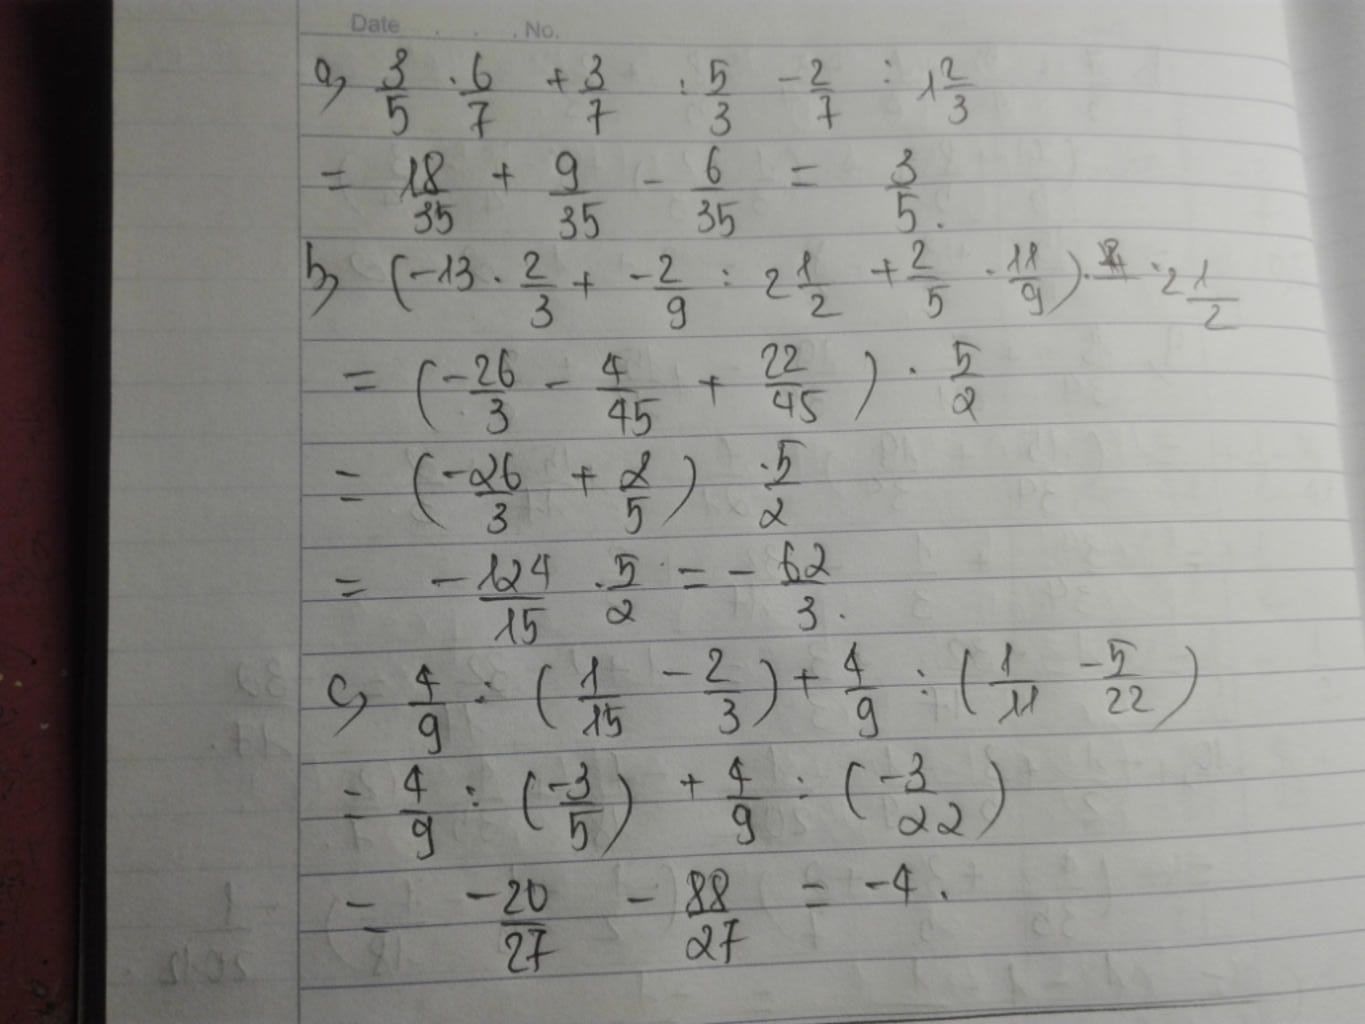 Date . . . No.
a) 3/5 . 6/7 + 3/7 : 5/3 - 2/7 : 1 2/3
= 18/35 + 9/35 - 6/35 = 3/5.
b) (-13 . 2/3 + -2/9 : 2 1/2 + 2/5 . 11/9) . 2 1/2
= (-26/3 - 4/45 + 22/45) . 5/2
= (-26/3 + 2/5) . 5/2
= -124/15 . 5/2 = - 62/3.
c) 4/9 : (1/15 - 2/3) + 4/9 : (1/11 - 5/22)
= 4/9 : (-3/5) + 4/9 : (-3/22)
= -20/27 - 88/27 = -4.